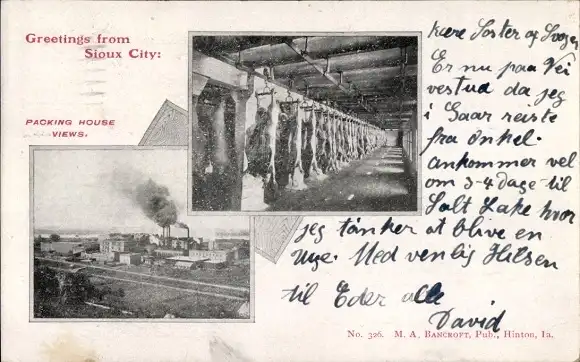 Greetings from
Sioux City:
PACKING HOUSE
VIEWS.
kære Søster og Svoger
Er nu paa Vei
vestud da jeg
i Gaar reiste
fra Onkel.
Ankommer vel
om 3-4 dage til
Salt Lake hvor
jeg tænker at blive en
Uge. Med venlig Hilsen
til Eder alle
David
No. 326. M. A. BANCROFT, Pub., Hinton, Ia.